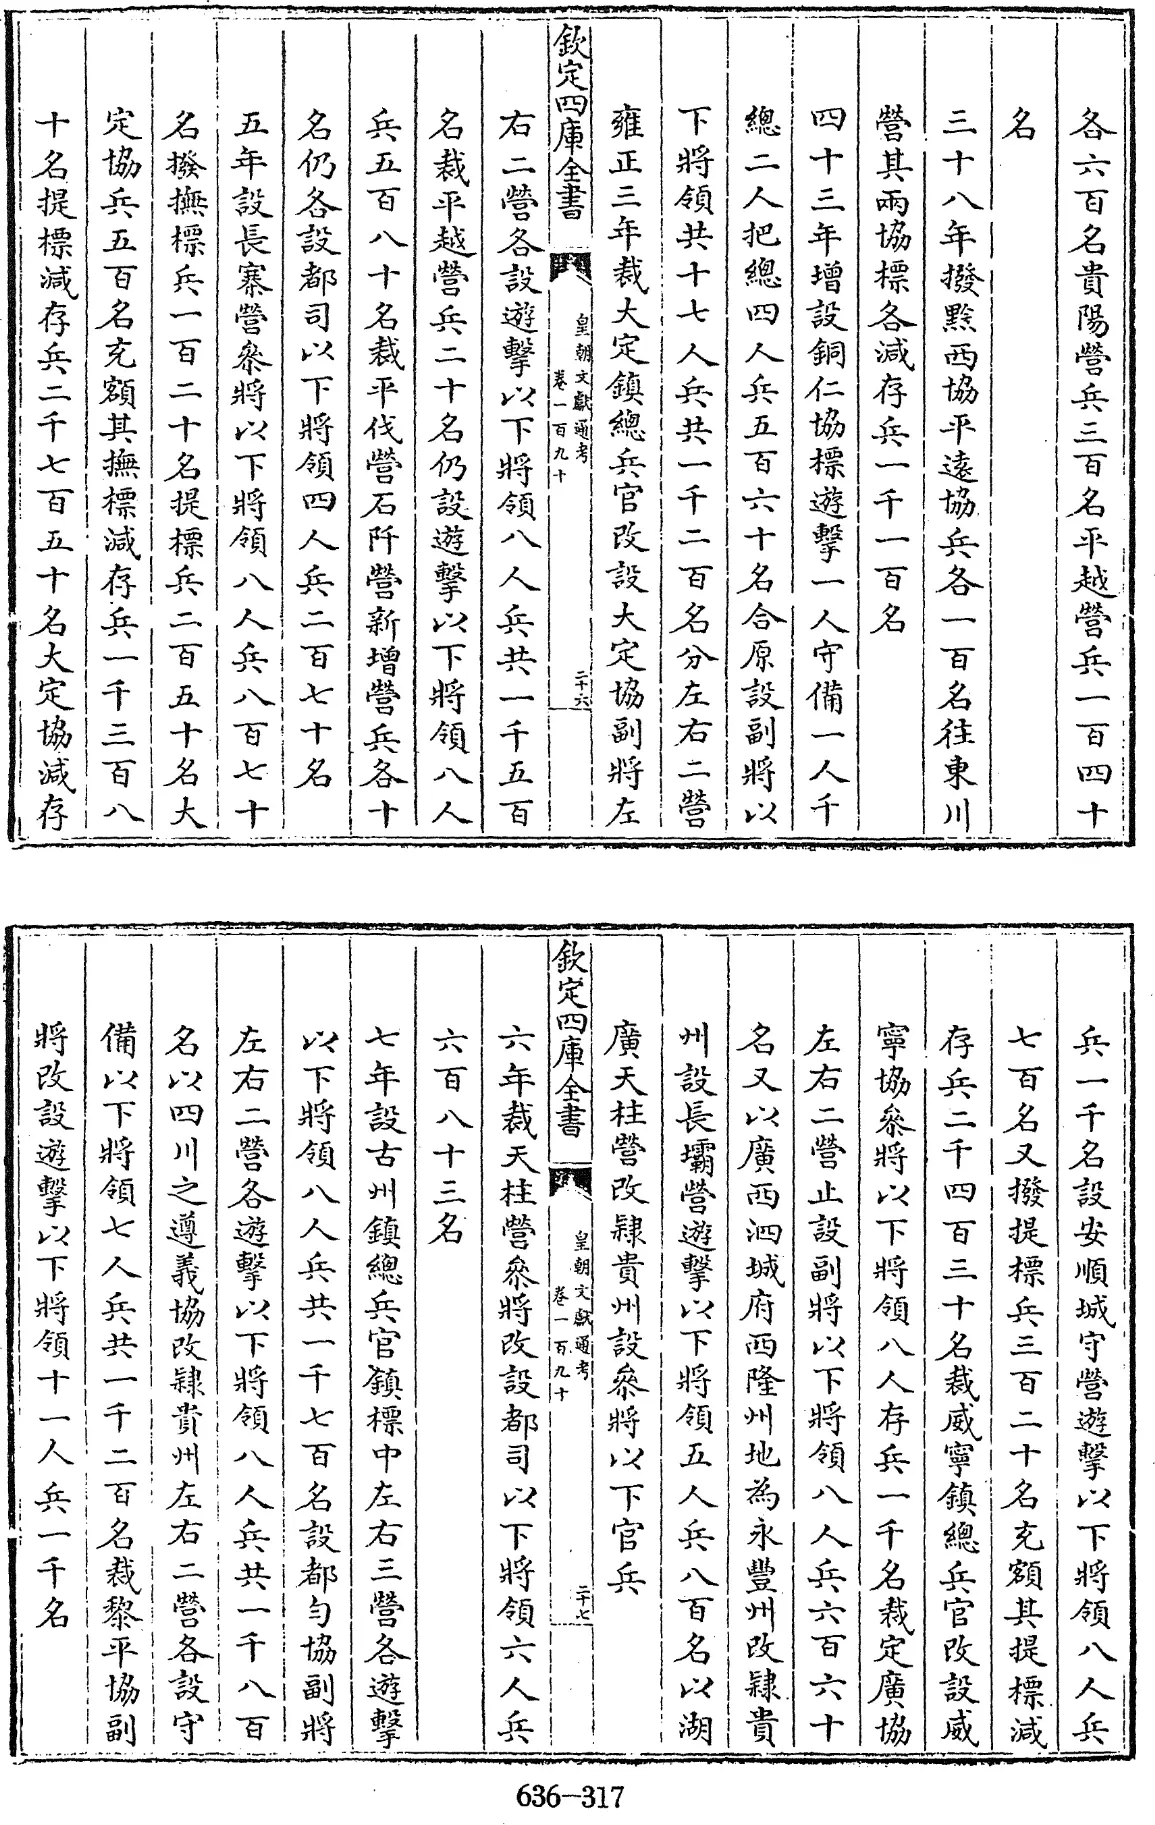 各六百名貴陽營兵三百名平越營兵一百四十
名
三十八年撥黔西協平遠協兵各一百名往東川
營其兩協標各減存兵一千一百名
四十三年增設銅仁協標遊擊一人守備一人千
總二人把總四人兵五百六十名合原設副將以
下將領共十七人兵共一千二百名分左右二營
雍正三年裁大定鎮總兵官改設大定協副將左
欽定四庫全書
皇朝文獻通考
卷一百九十
二十六
右二營各設遊擊以下將領八人兵共一千五百
名裁平越營兵二十名仍設遊擊以下將領八人
兵五百八十名裁平伐營石阡營新增營兵各十
名仍各設都司以下將領四人兵二百七十名
五年設長寨營叅將以下將領八人兵八百七十
名撥撫標兵一百二十名提標兵二百五十名大
定協兵五百名充額其撫標減存兵一千三百八
十名提標減存兵二千七百五十名大定協減存
兵一千名設安順城守營遊擊以下將領八人兵
七百名又撥提標兵三百二十名充額其提標減
存兵二千四百三十名裁威寧鎮總兵官改設威
寧協叅將以下將領八人存兵一千名裁定廣協
左右二營止設副將以下將領八人兵六百六十
名又以廣西泗城府西隆州地為永豐州改隸貴
州設長壩營遊擊以下將領五人兵八百名以湖
廣天柱營改隸貴州設叅將以下官兵
欽定四庫全書
皇朝文獻通考
卷一百九十
二十七
六年裁天柱營叅將改設都司以下將領六人兵
六百八十三名
七年設古州鎮總兵官鎮標中左右三營各遊擊
以下將領八人兵共一千七百名設都勻協副將
左右二營各遊擊以下將領八人兵共一千八百
名以四川之遵義協改隸貴州左右二營各設守
備以下將領七人兵共一千二百名裁黎平協副
將改設遊擊以下將領十一人兵一千名
636-317